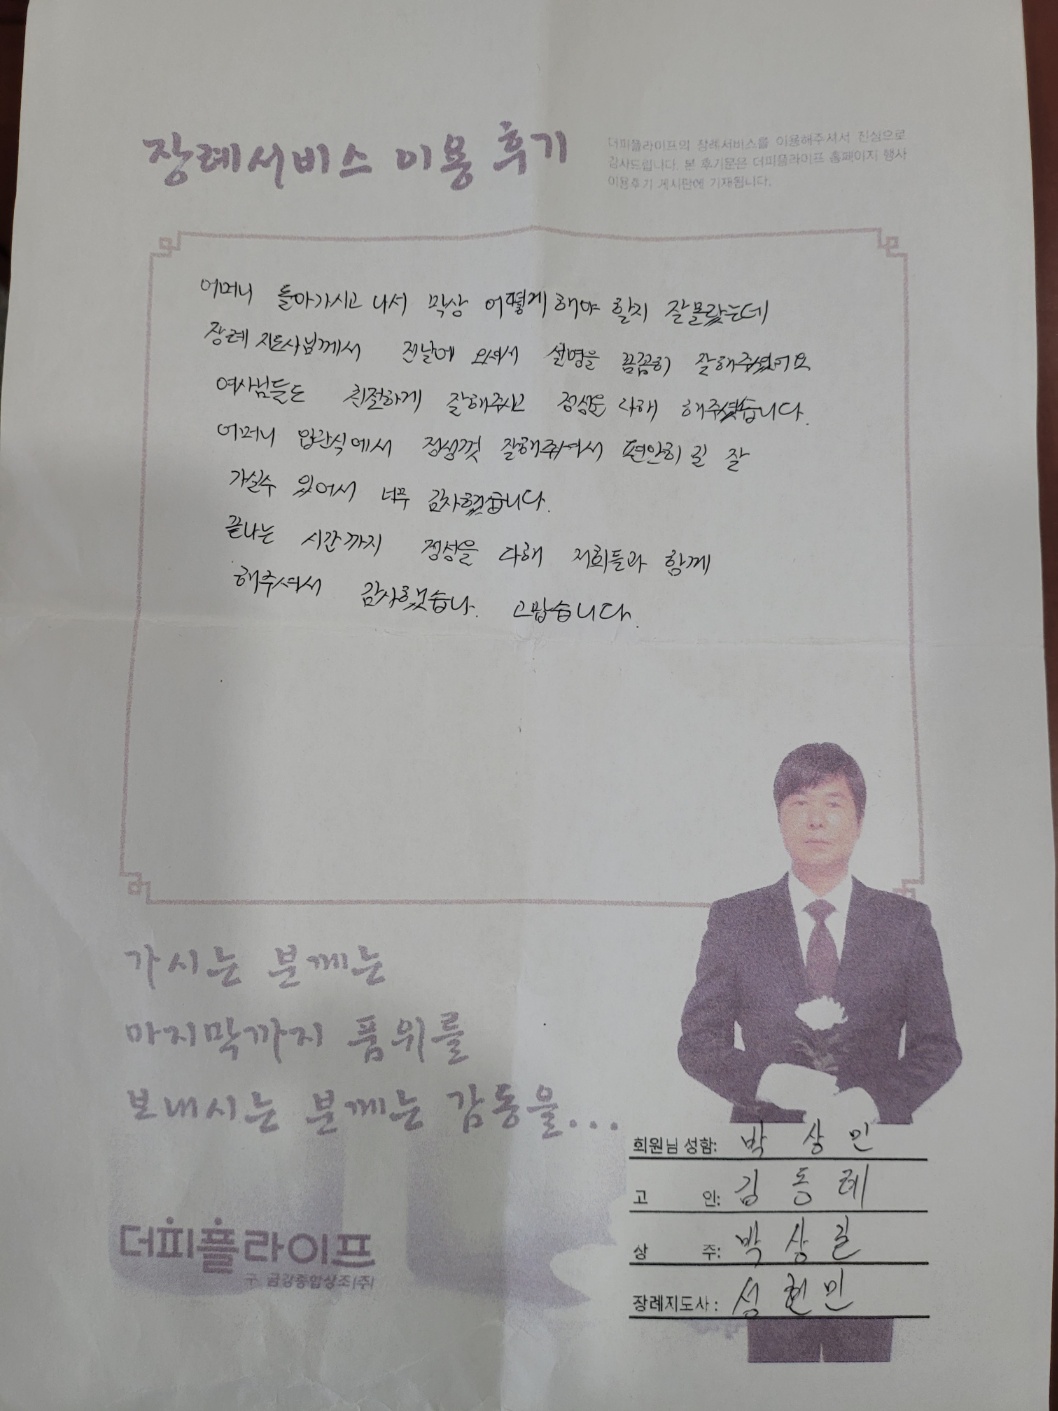 장례서비스 이용 후기
더피플라이프의 장례서비스를 이용해주셔서 진심으로
감사드립니다. 본 후기문은 더피플라이프 홈페이지 행사
이용후기 게시판에 기재됩니다.
어머니 돌아가시고 나서 막상 어떻게 해야 할지 잘몰랐는데
장례 지도사님께서 전날에 오셔서 설명을 꼼꼼히 잘해주셨어요
여사님들도 친절하게 잘해주시고 정성을 다해 해주셨습니다.
어머니 입관식에서 정성껏 잘해주셔서 편안히 길 잘
가실수 있어서 너무 감사했습니다.
끝나는 시간까지 정성을 다해 저희들과 함께
해주셔서 감사했습니다. 고맙습니다.
가시는 분께는
마지막까지 품위를
보내시는 분께는 감동을...
회원님 성함: 박상민
고 인: 김동례
상 주: 박상길
장례지도사: 현민
더피플라이프
구 금강종합상조(주)